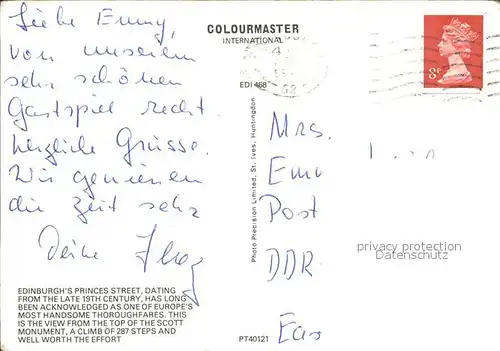 Liebe Emmy,
von unserem
sehr schönen
Gastspiel recht
herzliche Grüsse.
Wir geniessen
die Zeit sehr
Deine
EDINBURGH'S PRINCES STREET, DATING
FROM THE LATE 19TH CENTURY, HAS LONG
BEEN ACKNOWLEDGED AS ONE OF EUROPE'S
MOST HANDSOME THOROUGHFARES. THIS
IS THE VIEW FROM THE TOP OF THE SCOTT
MONUMENT, A CLIMB OF 287 STEPS AND
WELL WORTH THE EFFORT
COLOURMASTER
INTERNATIONAL
EDI 468
Photo Precision Limited, St. Ives, Huntingdon
PT40121
8P
Mrs.
Post
DDR
privacy protection
www.ansichtskarten-center.de